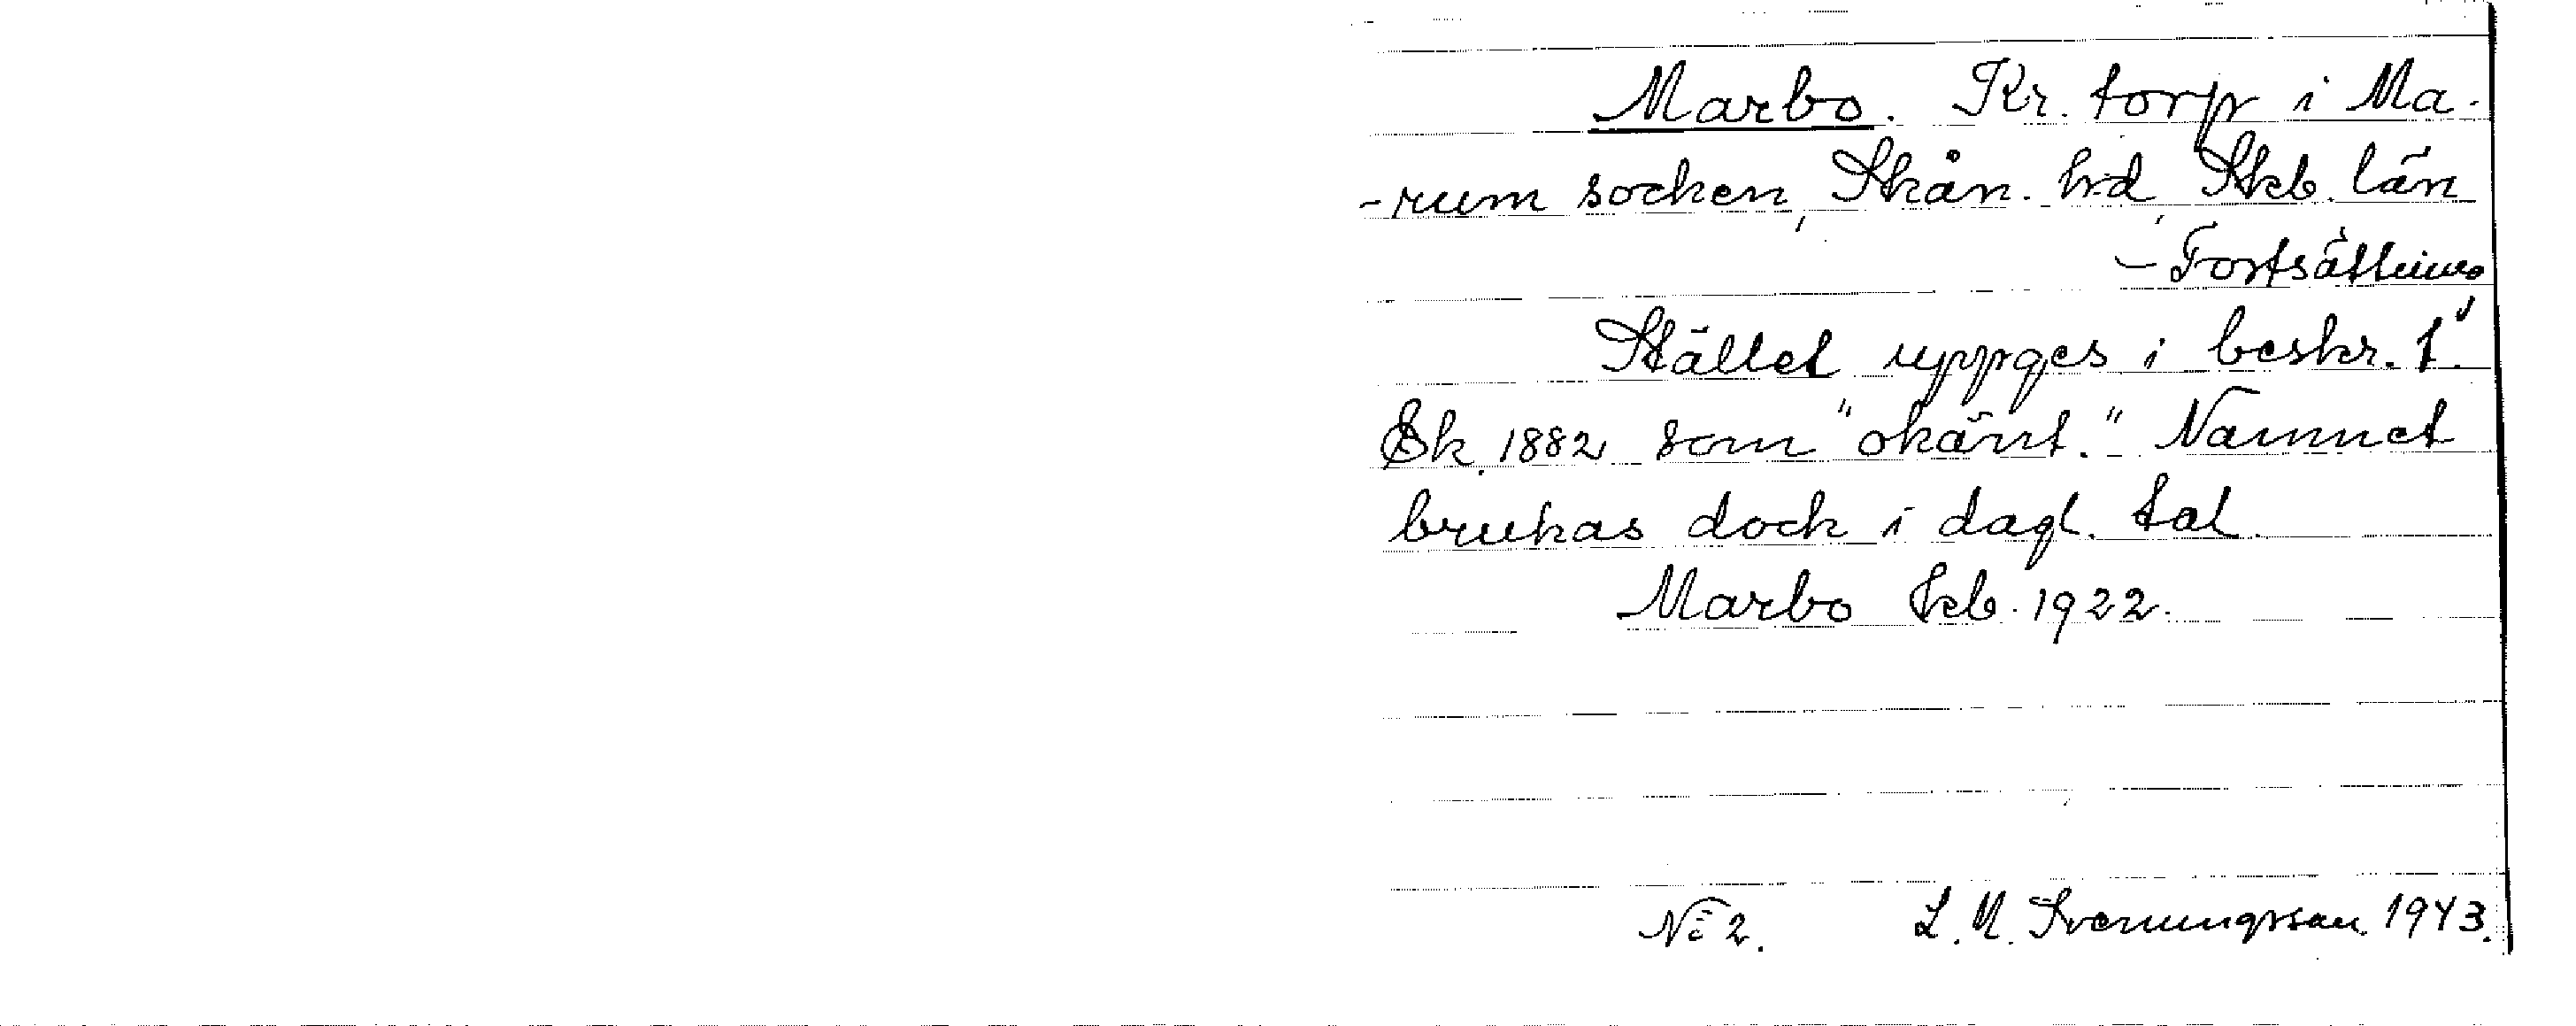 Marbo. Kr. torp i Ma-
-rum socken, Skån. hd, Skb. län
- Fortsättning
Stället uppges i beskr. t.
Ek. 1882 som "okänt." Namnet
brukas dock i dagl. tal.
Marbo Jeb. 1922.
No 2. L. M. Svenungsson 1943.